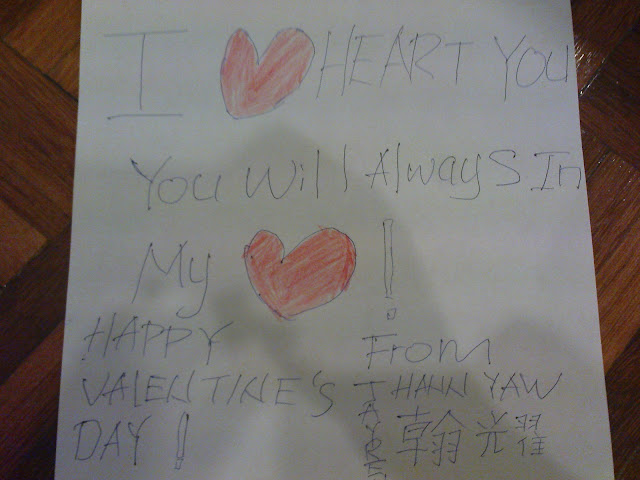 I HEART YOU
You Will Always In
My !
HAPPY
VALENTINE'S
DAY !
From
HANN YAW
翰光